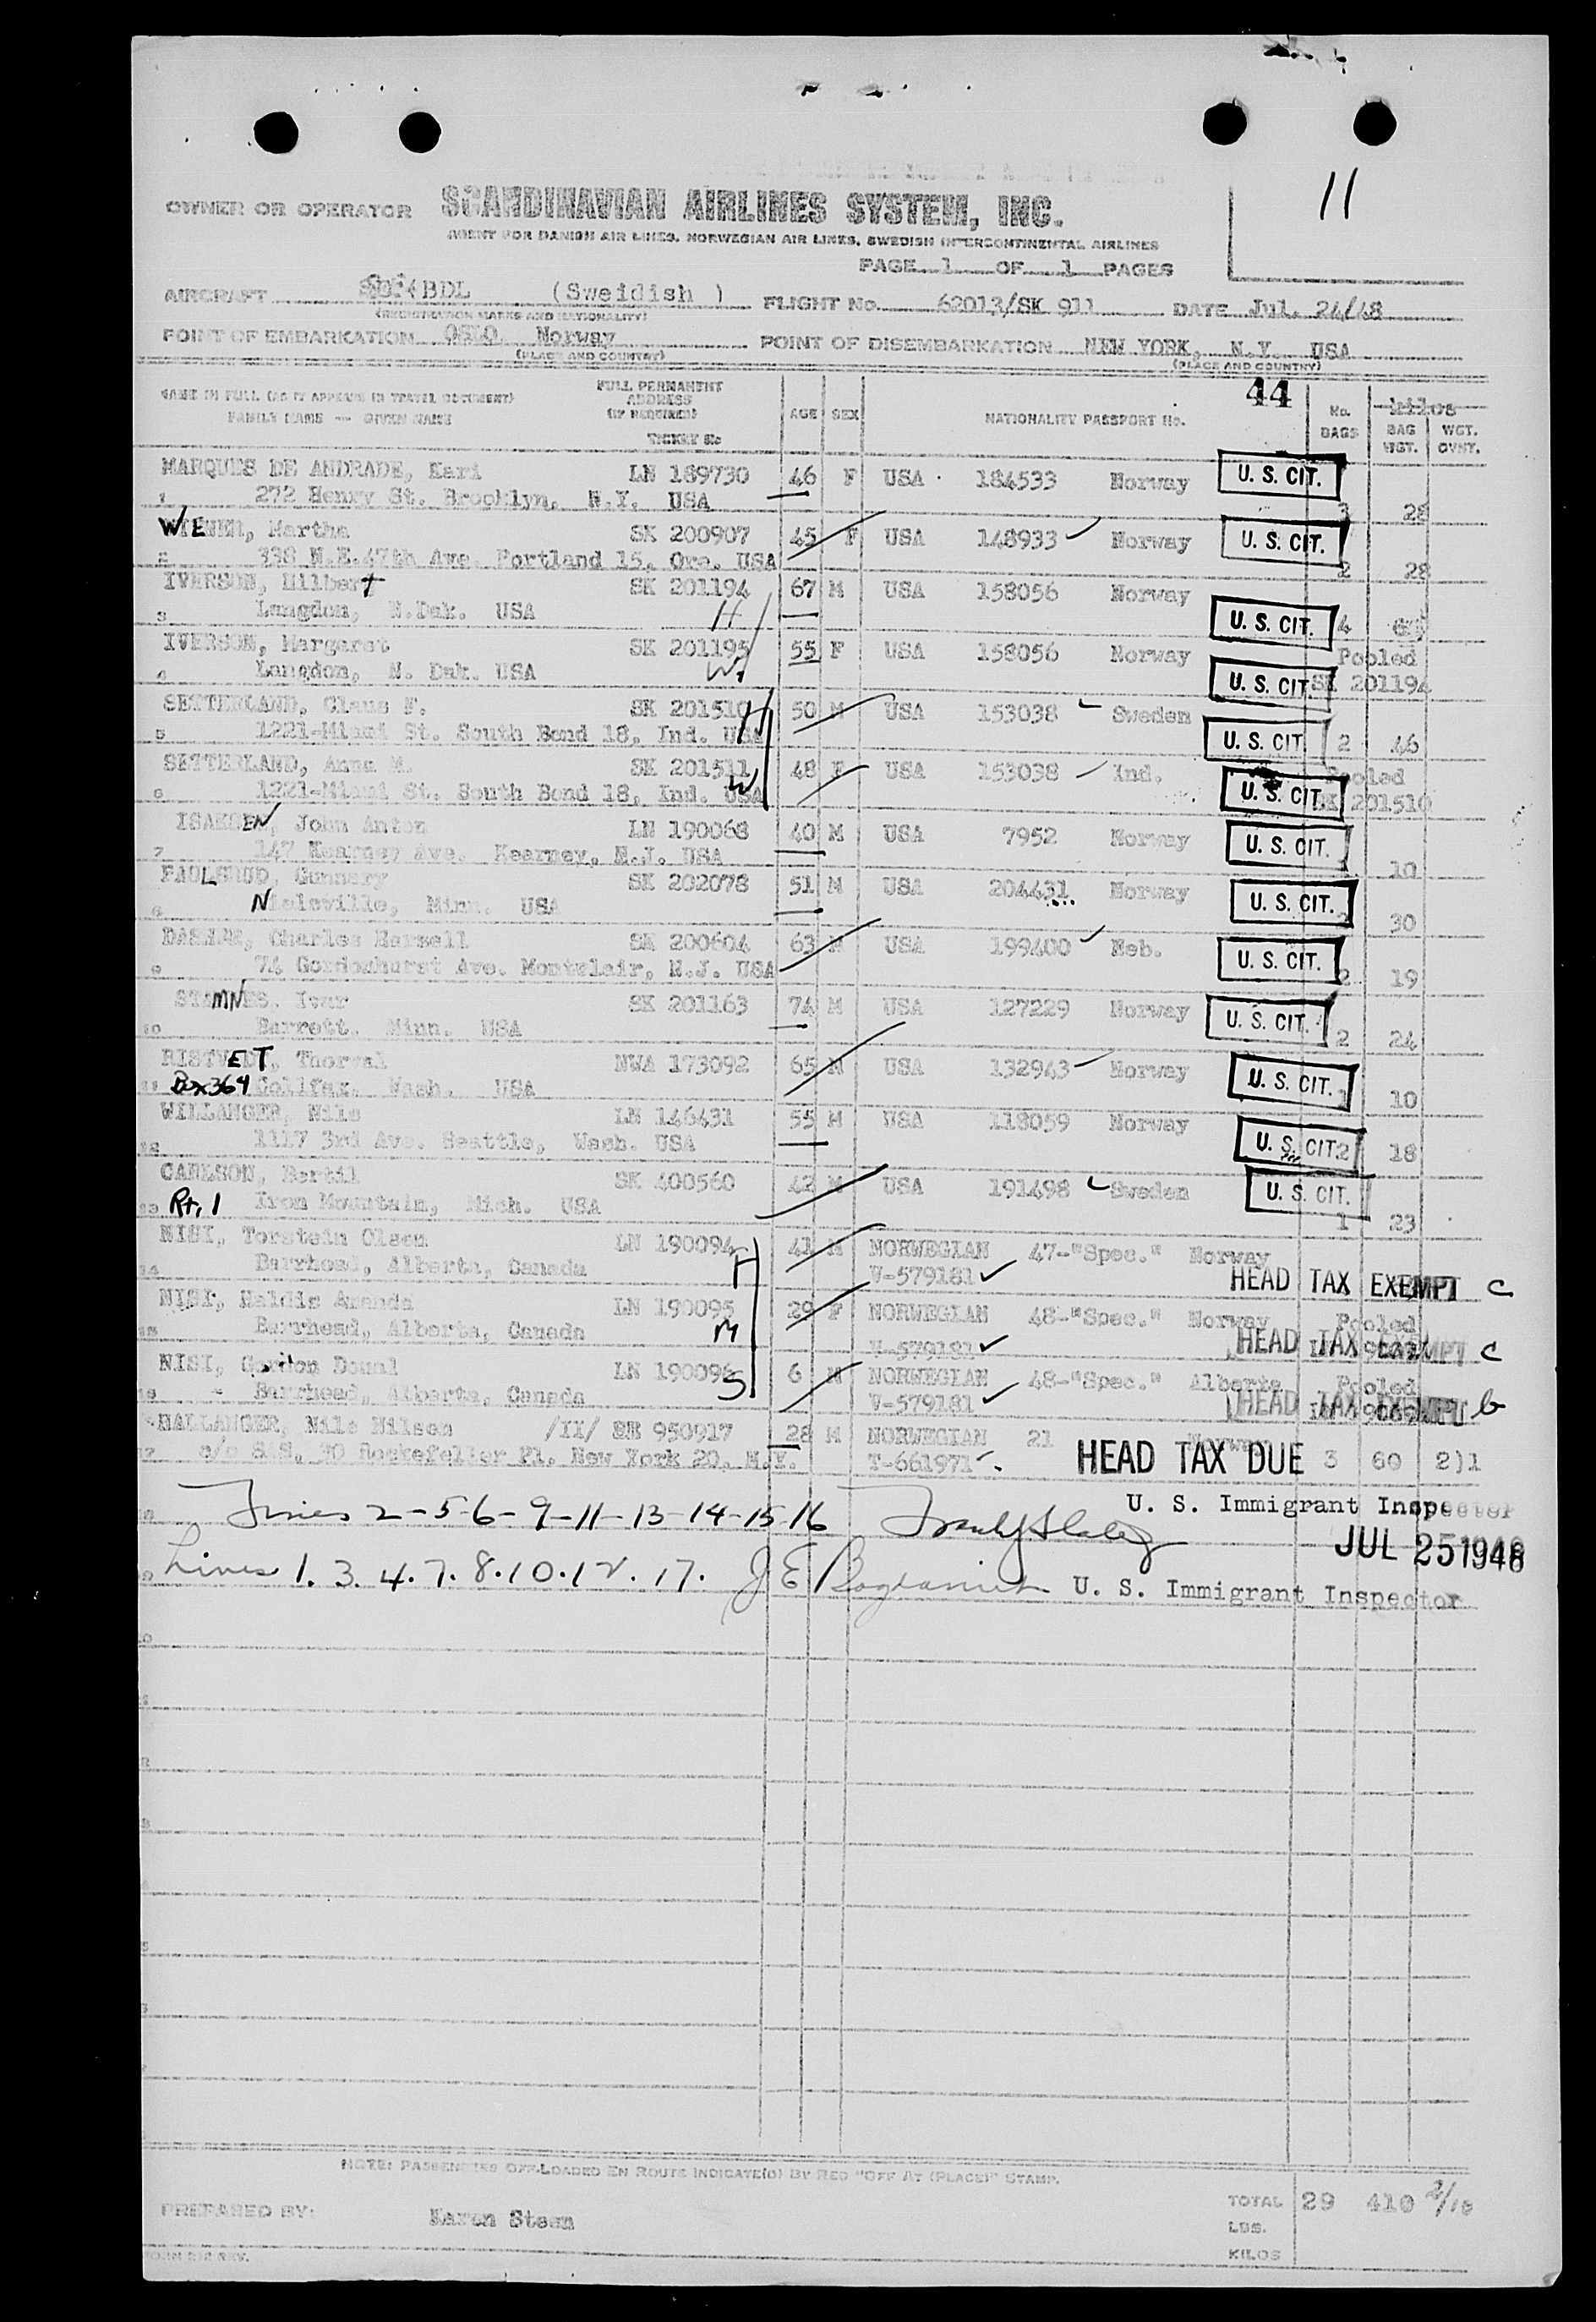 11
OWNER OR OPERATOR SCANDINAVIAN AIRLINES SYSTEM, INC.
AGENT FOR DANISH AIR LINES, NORWEGIAN AIR LINES, SWEDISH INTERCONTINENTAL AIRLINES
PAGE 1 OF 1 PAGES
AIRCRAFT BDL (Sweidish ) FLIGHT No. 62013/SK 911 DATE Jul. 24/48
(REGISTRATION MARKS AND NATIONALITY)
POINT OF EMBARKATION OSLO, Norway POINT OF DISEMBARKATION NEW YORK, N.Y. USA
(PLACE AND COUNTRY) (PLACE AND COUNTRY)
NAME IN FULL (AS IT APPEARS IN TRAVEL DOCUMENT) FULL PERMANENT ADDRESS (IF REQUIRED) AGE SEX NATIONALITY PASSPORT No. 44 No. BAGS kilos BAG WGT. WGT. OVWT.
FAMILY NAME — GIVEN NAME TICKET No
MARQUES DE ANDRADE, Kari LN 189730 46 F USA 184533 Norway U. S. CIT.
1 272 Henry St. Brooklyn, N.Y. USA 3 28
WIENER, Martha SK 200907 45 F USA 148933 Norway U. S. CIT.
2 338 N.E. 47th Ave. Portland 15, Ore. USA 2 28
IVERSON, Hilbert SK 201194 67 M USA 158056 Norway
3 Langdon, N.Dak. USA H U. S. CIT. 4
IVERSON, Margaret SK 201195 55 F USA 158056 Norway Pooled
4 Langdon, N. Dak. USA W. U. S. CIT. SK 201194
SETTERLAND, Claus F. SK 201510 50 M USA 153038 Sweden
5 1221-Miami St. South Bend 18, Ind. USA H U. S. CIT 2 46
SETTERLAND, Anna M. SK 201511 48 F USA 153038 Ind. Pooled
6 1221-Miami St. South Bend 18, Ind. USA W U. S. CIT. SK 201510
ISAKSEN, John Anton LN 190068 40 M USA 7952 Norway U. S. CIT.
7 147 Kearney Ave. Kearney, N.J. USA 10
PAULSRUD, Gunnary SK 202078 51 M USA 204431 Norway U. S. CIT.
8 Nielsville, Minn. USA 2 30
Charles Harwell SK 200604 63 M USA 199400 Neb. U. S. CIT.
9 74 Gordonhurst Ave. Montclair, N.J. USA 2 19
STAMNES, Ivar SK 201163 74 M USA 127229 Norway U. S. CIT.
10 Barrett. Minn. USA 2 24
RISTVEDT, Thorval NWA 173092 65 M USA 132943 Norway U. S. CIT.
11 Box 364 Collfax, Wash. USA 1 10
WILLANGER, Nils LN 146431 55 M USA 118059 Norway
12 1117 3rd Ave. Seattle, Wash. USA U. S. CIT. 2 18
CARLSON, Bertil SK 400560 42 M USA 191498 Sweden U. S. CIT.
13 Rt. 1 Iron Mountain, Mich. USA 1 23
NISI, Torstein Olsen LN 190094 41 M NORWEGIAN 47-"Spec." Norway
14 Barrhead, Alberta, Canada H V-579181 HEAD TAX EXEMPT c
NISI, Haldis Amanda LN 190095 29 F NORWEGIAN 48-"Spec." Norway Pooled
15 Barrhead, Alberta, Canada M V-579181 HEAD TAX EXEMPT c
NISI, Gordon Donal LN 190096 6 M NORWEGIAN 48-"Spec." Alberta Pooled
16 - Barrhead, Alberta, Canada S V-579181 HEAD TAX EXEMPT b
HALLANGER, Nils Nilsen /II/ 950917 28 M NORWEGIAN 21 Norway
17 c/o SAS, 30 Rockefeller Pl. New York 20, N.Y. T-661971 HEAD TAX DUE 3 60 2)1
U. S. Immigrant Inspector
18 Lines 2-5-6-9-11-13-14-15-16
JUL 25 1948
19 Lines 1. 3. 4. 7. 8. 10. 12. 17. J E U. S. Immigrant Inspector
NOTE: PASSENGERS OFF-LOADED EN ROUTE INDICATE(D) BY RED "OFF AT (PLACE)" STAMP.
PREPARED BY: Karen Steen TOTAL 29 410 2/10
LBS.
KILOS